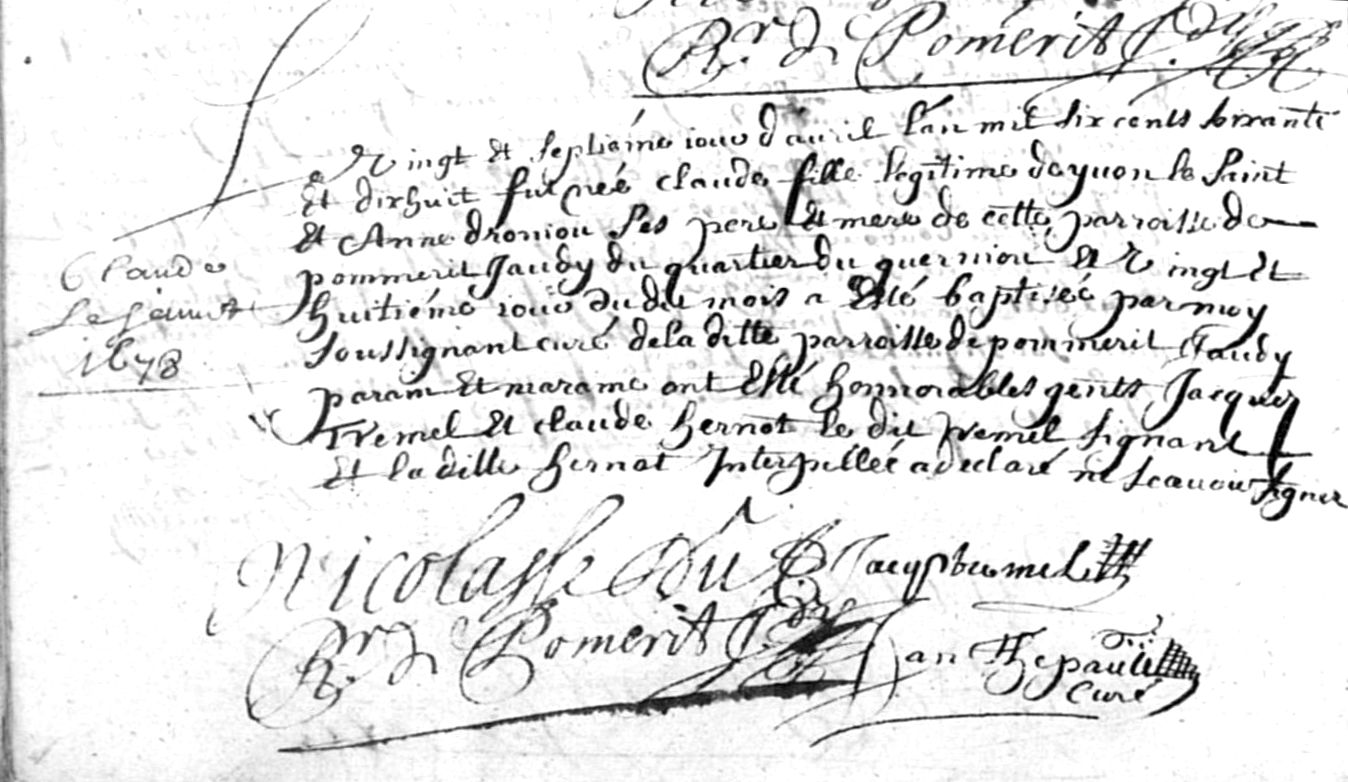 Rr de Pomerit J
Le Vingt et septiéme iour d'auril l'an mil six cents soixante
et dixhuit fut née claude fille légitime de yuon le saint
et Anne droniou ses pere et mere de cette parroisse de
pommerit Jaudy du quartier du guerniou et vingt et
huitiéme iour du dit mois a esté baptisée par moy
soussignant curé de la ditte parroisse de pommerit Jaudy
parain et maraine ont esté honnorables gents Jacques
Tremel et claude hernot le dit tremel signant
et la ditte hernot Interpellée a declaré ne scauoir signer
Claude
le saint
1678
Nicolas le Jacqs tremel
Rr de Pomerit J
Jan Thepault
curé